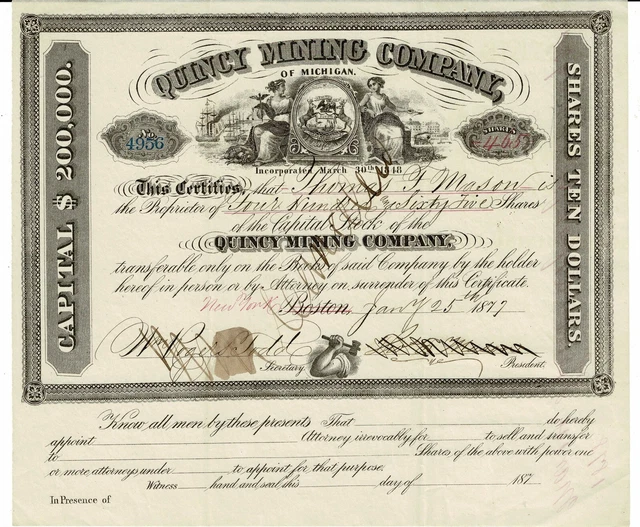 QUINCY MINING COMPANY,
OF MICHIGAN.
CAPITAL $ 200,000.
SHARES TEN DOLLARS.
No.
4956
SHARES
465
Incorporated March 30th 1848
This Certifies, that Thomas F. Mason is
the Proprietor of Four Hundred Sixty five Shares
of the Capital Stock of the
QUINCY MINING COMPANY,
transferable only on the Books of said Company by the holder
hereof in person or by Attorney on surrender of this Certificate.
New York Boston, Jany 25th 1877
Cancelled
Wm Rogers Todd
Secretary.
President.
Know all men by these presents That do hereby
appoint Attorney irrevocably for to sell and transfer
to Shares of the above with power one
or more attorneys under to appoint for that purpose.
Witness hand and seal this day of 187
In Presence of